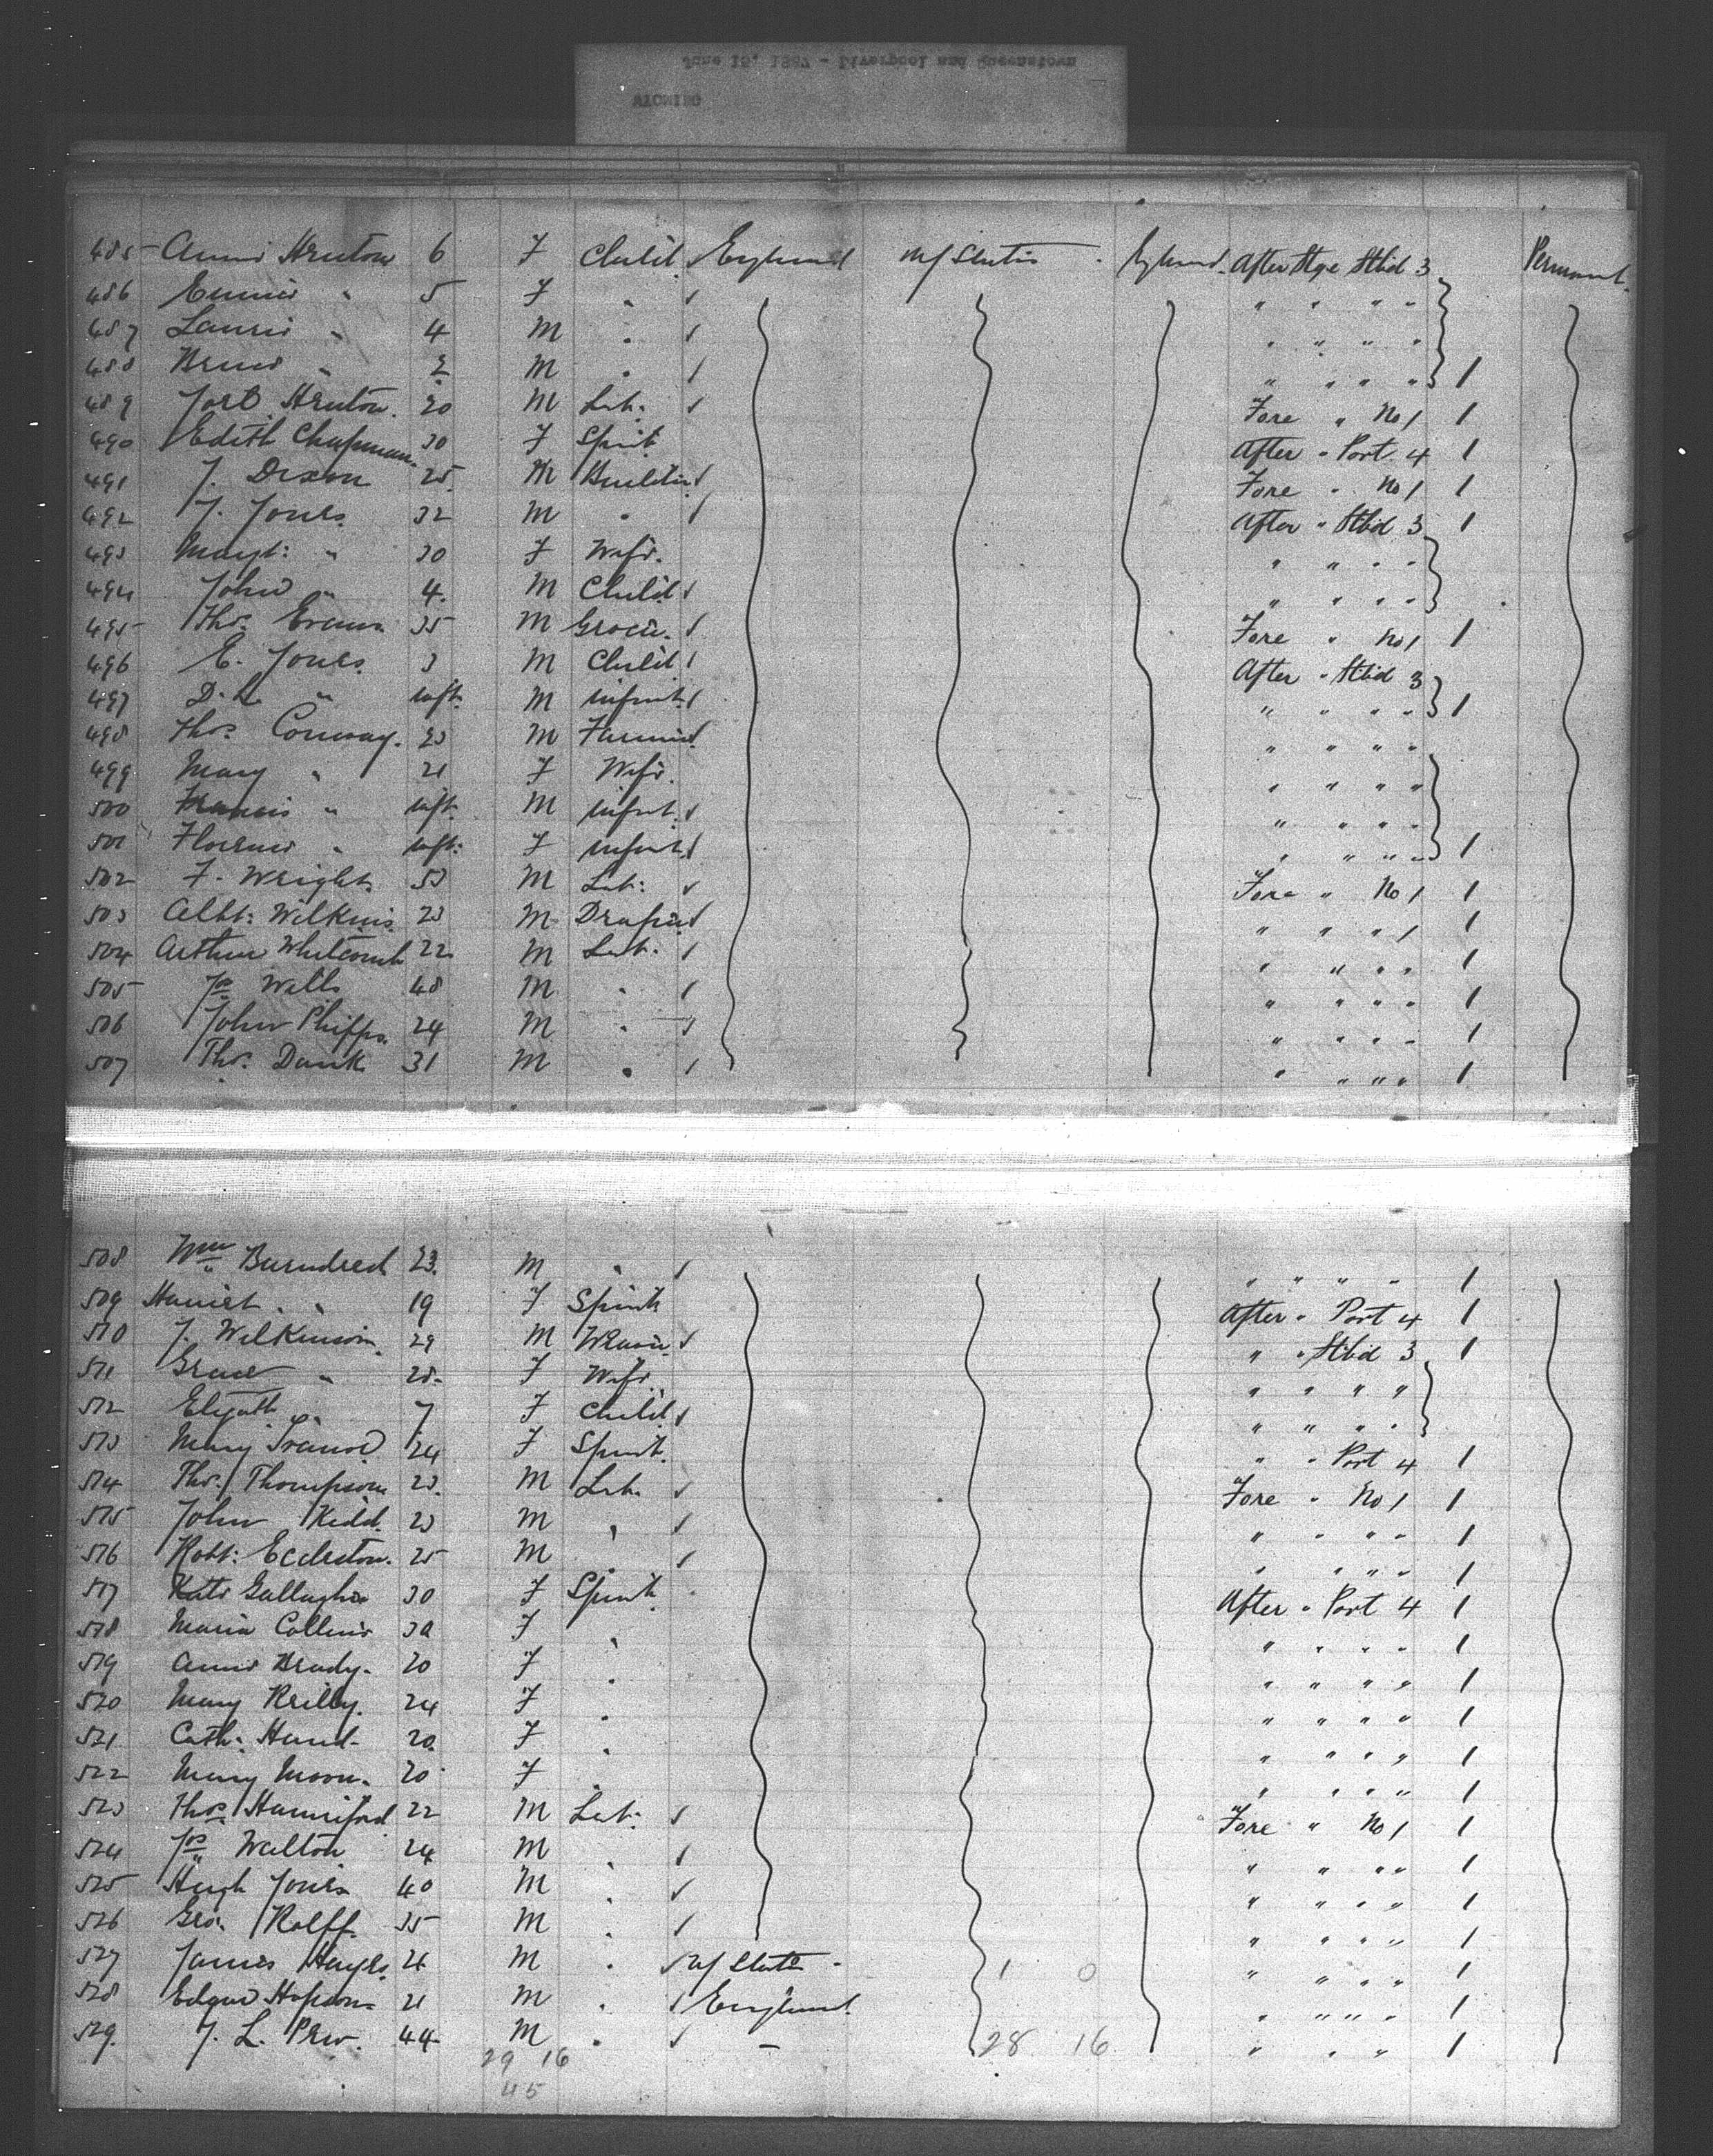 June 15, 1887 - Liverpool and Queenstown
WYOMING
485 Annie Hruton 6 F Child England U/States England After Stge Stbd 3 Permanent
486 Emmie " 5 F " " " " "
487 Laurie " 4 M " " " " "
488 " 2 M " " " " " 1
489 Hruton. 20 M Lab: Fore " No 1 1
490 Edith Chapman. 30 F Spinst. After " Port 4 1
491 J. Dixon 25 M Fore " No 1 1
492 J. Jones. 32 M " After " Stbd 3 1
493 Margt: " 30 F Wife. " " " "
494 John " 4. M Child " " " "
495 Thos. Evans 35 M Grocer. Fore " No 1 1
496 E. Jones. 3 M Child After " Stbd 3
497 D. L. " inft. M infant " " " " 1
498 Thos. Conway. 23 M " " " "
499 Mary " 21 F Wife. " " " "
500 Francis " inft. M infant. " " " "
501 Florence " inft: F infant. " " " " 1
502 F. Wright. 53 M Lab: Fore " No 1 1
503 Albt: Wilkins. 23 M Draper " " " 1 1
504 Arthur Whitcomb 22 M Lab: " " " " 1
505 Jos Wells 48 M " " " " " 1
506 John Phipps. 24 M " " " " " 1
507 Thos. Dank 31 M " " " " " 1
508 Wm Burndred 23. M " " " " " 1
509 Harriet " " 19 F Spinst. After " Port 4 1
510 J. Wilkinson. 29 M Weaver " " Stbd 3 1
511 Grace " 28. F Wife " " " "
512 Elizath " 7 F Child " " " "
513 Mary 24 F Spinst. " " Port 4 1
514 Thos. Thompson 23. M Lab. Fore " No 1 1
515 John Kidd. 23 M " " " " " 1
516 Robt: Eccleston. 25 M " " " " " 1
517 Kate Gallagher 30 F Spinst. After " Port 4 1
518 Maria Collins 30 F " " " " " 1
519 Annie Brady. 20 F " " " " " 1
520 Mary Reilly. 24 F " " " " " 1
521 Cath: Hand. 20. F " " " " " 1
522 Mary Moon. 20 F " " " " "
523 Thos Hanniford 22 M Lab: Fore " No 1 1
524 Jos Walton 24 M " " " " " 1
525 Hugh Jones 40 M " " " " " 1
526 Geo. Rolff. 35 M " " " " " 1
527 James Hayes. 21 M " U/States " 1 0 " " " " 1
528 Edgar 21 M " England " " " " 1
529. J. L. Pew. 44 M " - 28 16 " " " 1
29 16
45